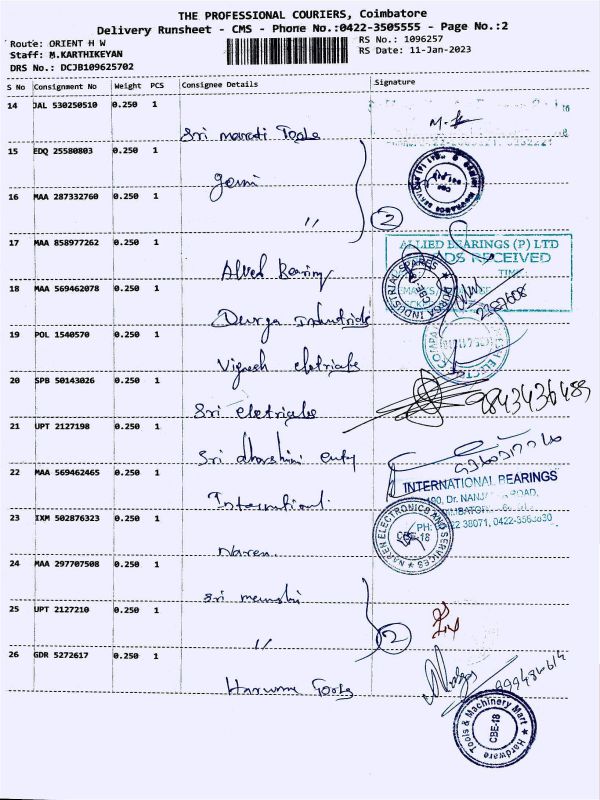 THE PROFESSIONAL COURIERS, Coimbatore
Delivery Runsheet - CMS - Phone No.:0422-3505555 - Page No.:2
Route: ORIENT H W
RS No.: 1096257
Staff: M.KARTHIKEYAN
RS Date: 11-Jan-2023
DRS No.: DCJB109625702
S No Consignment No Weight PCS Consignee Details Signature
14 JAL 530250510 0.250 1
Sri maruti Tools
15 EDQ 25580803 0.250 1
gemi
16 MAA 287332760 0.250 1
" 2
17 MAA 858977262 0.250 1
ALLIED BEARINGS (P) LTD
RECEIVED
TIME
Allied Bearing
18 MAA 569462078 0.250 1
DURGA INDUSTRIAL SPARES
Durga Industrials
19 POL 1540570 0.250 1
Vignesh eletricals
20 SPB 50143026 0.250 1
Sri eletricals
9843436489
21 UPT 2127198 0.250 1
Sri dharshini enty
22 MAA 569462465 0.250 1
INTERNATIONAL BEARINGS
ROAD,
PH: 38071, 0422-
International
23 IXM 502876323 0.250 1
NAREN ELECTRONICS AND SERVICES
CBE-18
Naren
24 MAA 297707508 0.250 1
Sri
25 UPT 2127210 0.250 1
" 2
26 GDR 5272617 0.250 1
Tools
Tools & Machinery Mart
Hardware
CBE-18